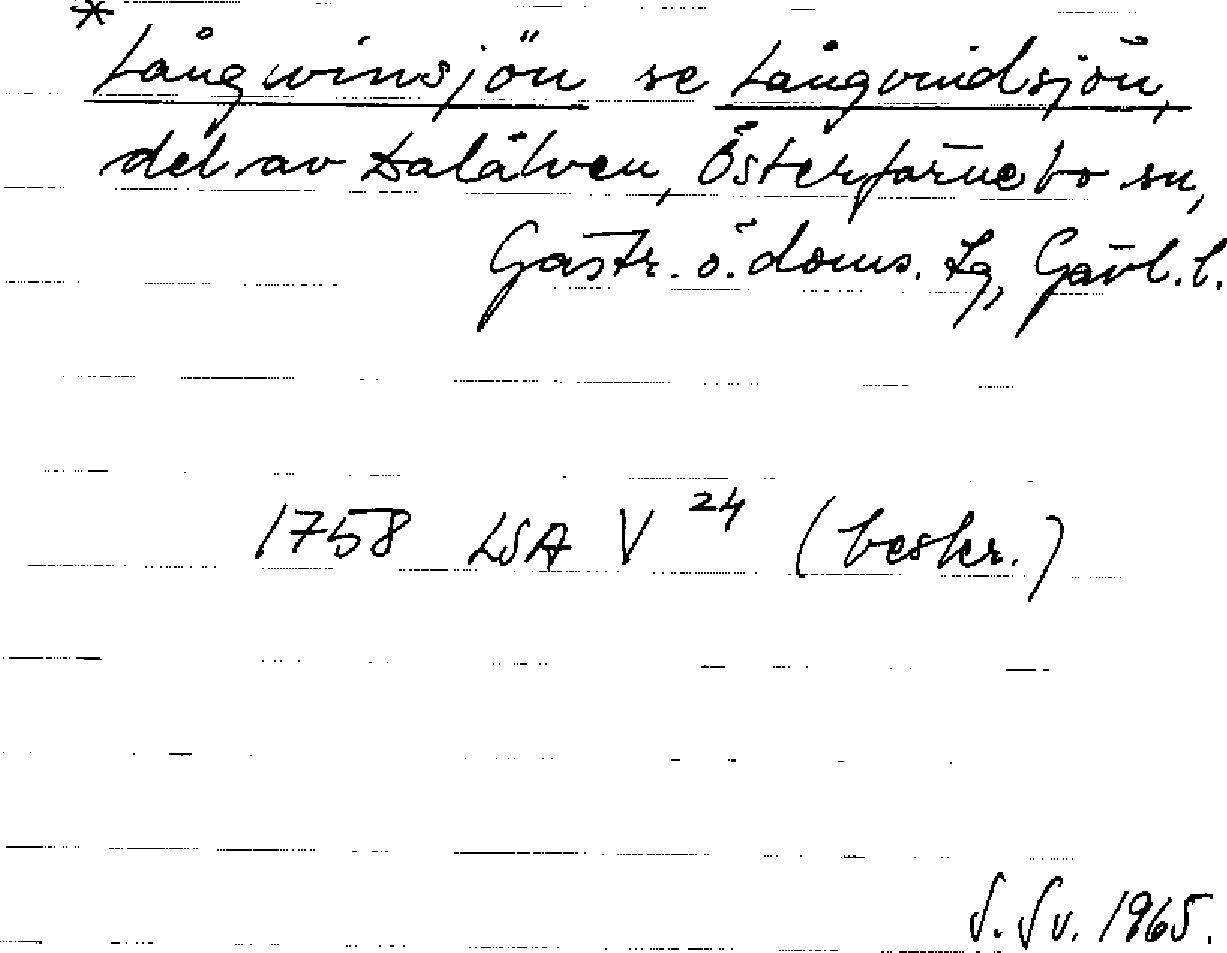 *
Långwinsjön se Långvindsjön,
del av Dalälven, Österfärnebo sn,
Gästr. ö. doms. Lg, Gävl. l.
1758 LSA V 24 (beskr.)
S. Sv. 1965.